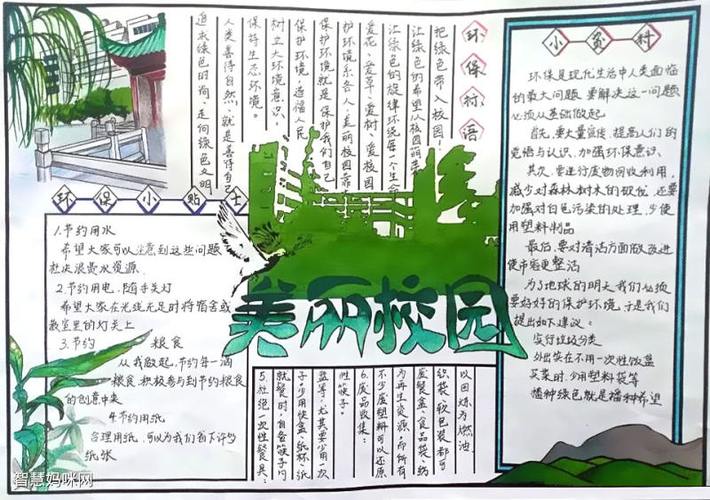 环保标语
把绿色带入校园!
让绿色的希望从校园萌芽
让绿色的旋律环绕每一个生命
爱花、爱草、爱树、爱校园
护环境系各人,美丽校园靠
保护环境就是保护我们自己
保护环境 造福人民
树立大环境意识。
保持生态环境。
人类善待自然,就是善待自己
追求绿色时尚,走向绿色文明
小资料
环保是现代生活中人类面临
的最大问题,要解决这一问题
必须从基础做起
首先,要大量宣传,提高人们的
觉悟与认识,加强环保意识。
其次,要进行废物回收利用,
减少对森林树木的砍伐,还要
加强对白色污染的处理,少使
用塑料制品
最后,要对清洁方面做改进
使市容更整洁
为了地球的明天,我们必须
要好好的保护环境,于是我们
提出如下建议:
实行垃圾分类
外出装在不用一次性饭盒
买菜时,少用塑料袋等
播种绿色就是播种希望
环保小贴士
1.节约用水
希望大家可以注意到这些问题
杜决浪费水资源、
2.节约用电,随手关灯
希望大家在光线充足时将宿舍或
教室里的灯关上
3.节约 粮食
从我做起,节约每一滴
粮食,积极参与到节约粮食
的创意中来
4.节约用纸
合理用纸,可以为我们省下许多
纸张
美丽校园
5.杜绝一次性餐具:
就餐时,自备筷子勺
子。少用快盒、纸杯、纸
盒等,尤其要少用一次
性筷子。
6.废品收集:
不少废塑料可以还原
为再生资源,而所有
废餐盒、食品袋、编
织袋、软包装都可
以回炼为燃油
智慧妈咪网